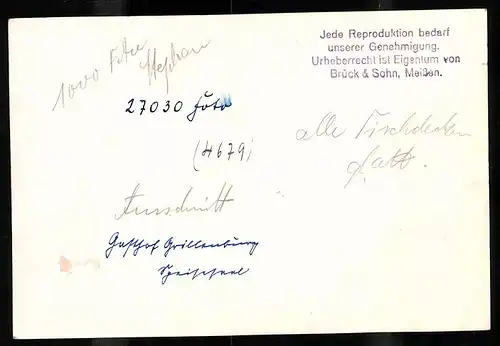 Jede Reproduktion bedarf
unserer Genehmigung.
Urheberrecht ist Eigentum von
Brück & Sohn, Meißen.
1000
Stephan
27030 Foto
(H679)
alle Tischdecken
glatt.
Ausschnitt
Gasthof Grillenburg
Speisesaal